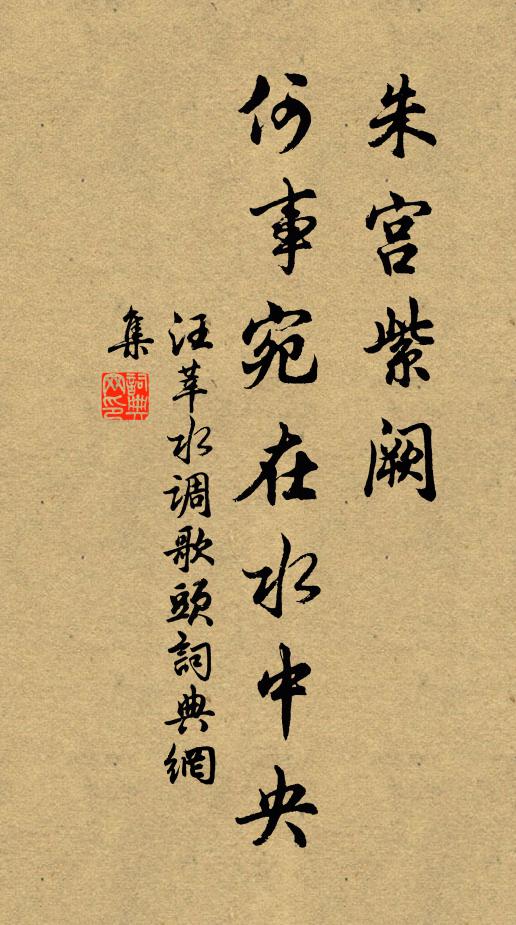 朱宫紫阙
何事宛在水中央
汪莘水调歌頭詞典網
集
詞典網印